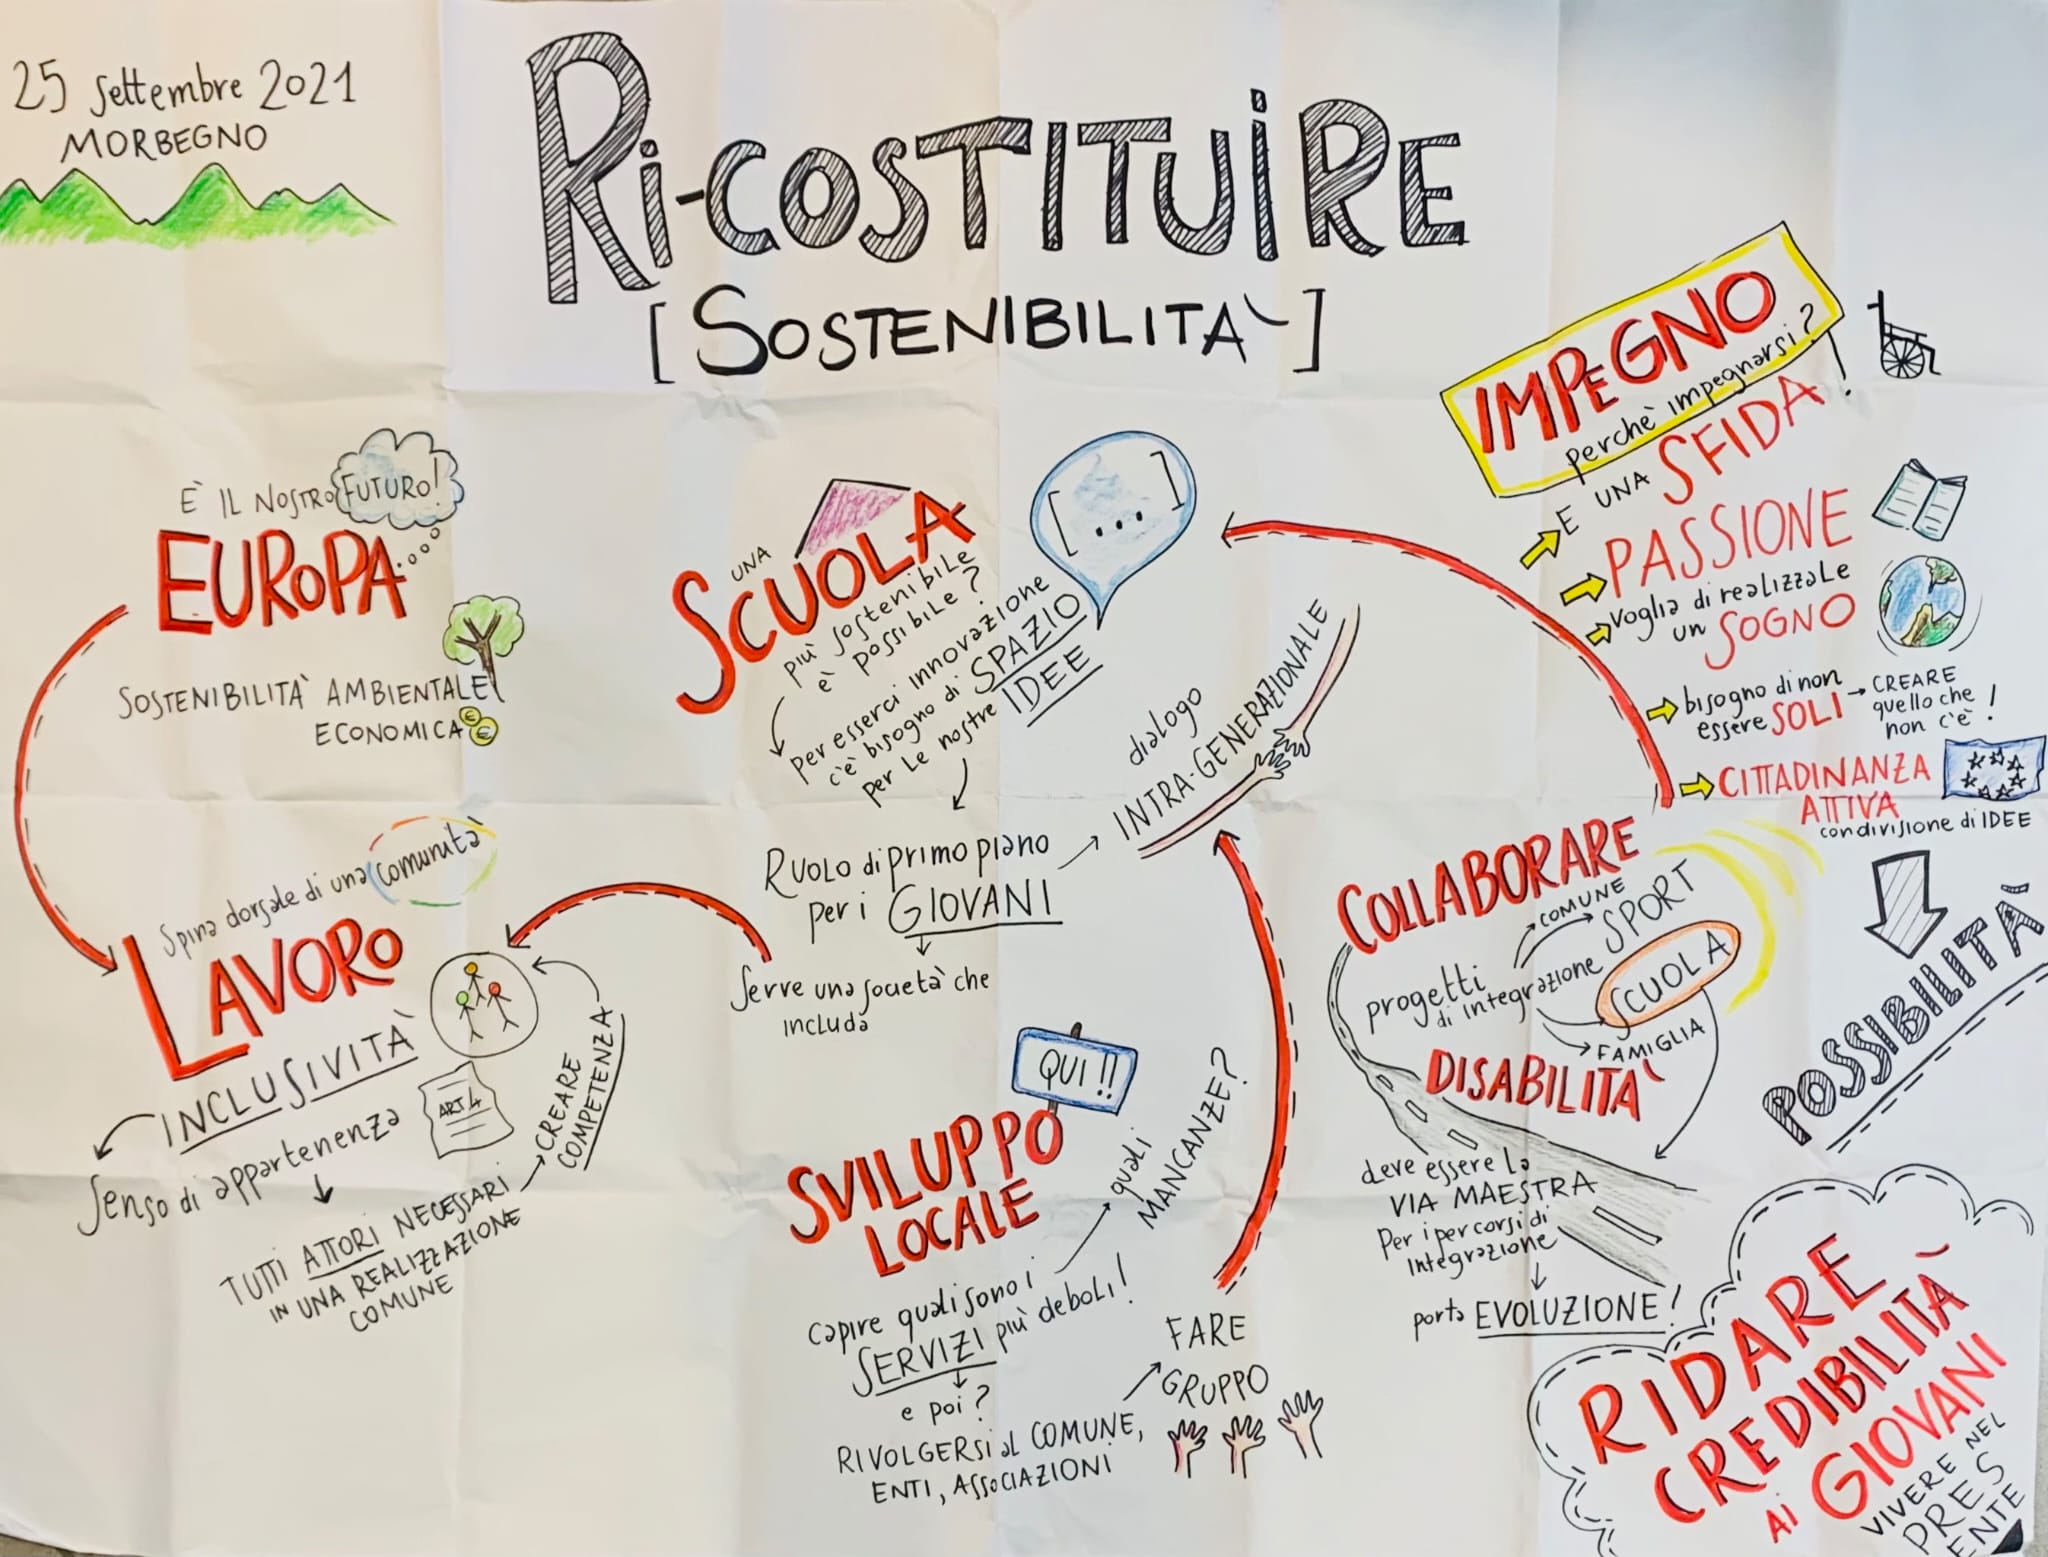 25 Settembre 2021
MORBEGNO
Ri-COSTITUiRE
[SOSTENIBILITA']
È IL NOSTRO FUTURO!
EUROPA...
SOSTENIBILITÀ AMBIENTALE
ECONOMICA
€
€
Spina dorsale di una comunità
LAVORO
INCLUSIVITÀ
Senso di appartenenza
ART 4
TUTTI ATTORI NECESSARI
IN UNA REALIZZAZIONE
COMUNE
CREARE
COMPETENZA
UNA
SCUOLA
più sostenibile
è possibile?
per esserci innovazione
c'è bisogno di SPAZIO
per le nostre IDEE
[...]
RUOLO di primo piano
per i GIOVANI
Serve una società che
includa
dialogo
INTRA-GENERAZIONALE
QUI!!
SVILUPPO
LOCALE
capire quali sono i
SERVIZI più deboli!
quali
MANCANZE?
e poi?
RIVOLGERSI al COMUNE,
ENTI, ASSOCIAZIONI
FARE
GRUPPO
IMPEGNO
perchè impegnarsi?
E UNA SFIDA!
PASSIONE
voglia di realizzale
un SOGNO
bisogno di non
essere SOLI
CREARE
quello che
non c'è!
CITTADINANZA
ATTIVA
condivisione di IDEE
POSSIBILITÀ
COLLABORARE
progetti
di integrazione
COMUNE
SPORT
SCUOLA
FAMIGLIA
DISABILITA'
deve essere la
VIA MAESTRA
Per i percorsi di
integrazione
porta EVOLUZIONE!
RIDARE
CREDIBILITÀ
AI GIOVANI
VIVERE NEL
PRES
ENTE